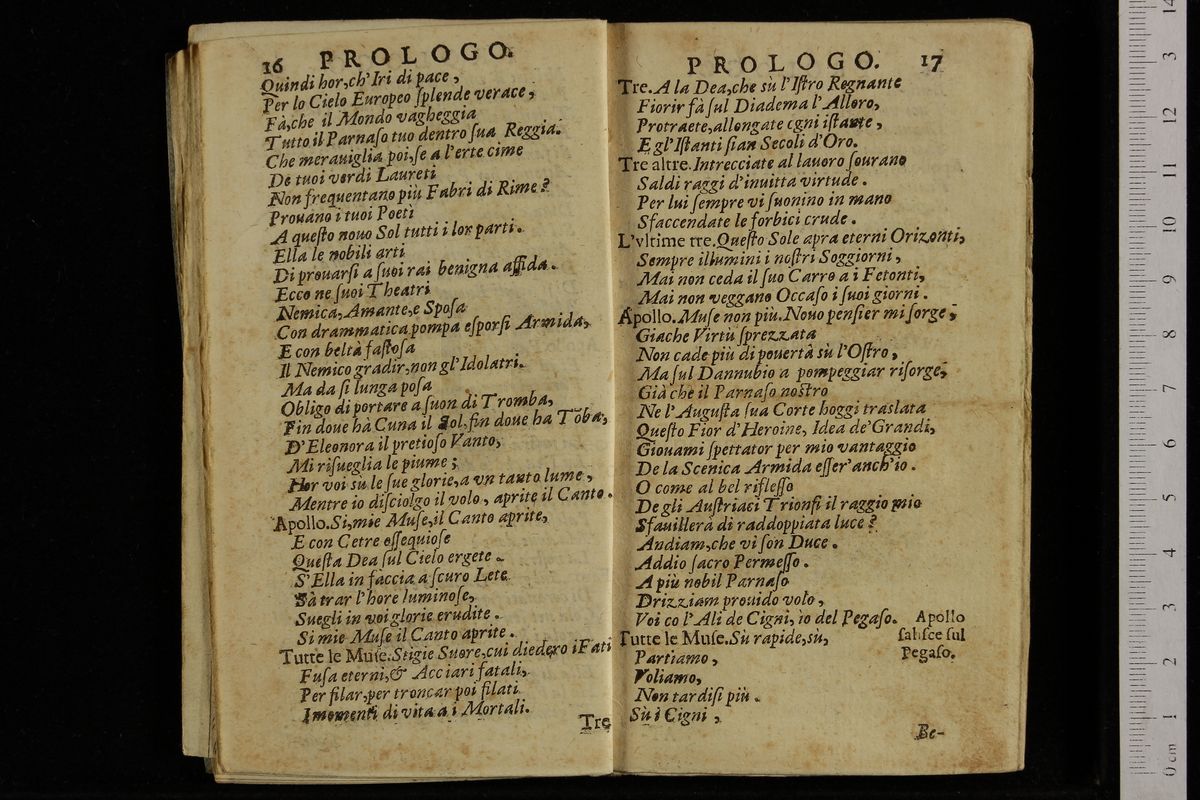 16 PROLOGO.
Quindi hor, ch'Iri di pace,
Per lo Cielo Europeo ſplende verace,
Fà, che il Mondo vagheggia
Tutto il Parnaſo tuo dentro ſua Reggia.
Che merauiglia poi, ſe a l'erte cime
De tuoi verdi Laureti
Non frequentano più Fabri di Rime?
Prouano i tuoi Poeti
A queſto nouo Sol tutti i lor parti.
Ella le nobili arti
Di prouarſi a ſuoi rai benigna affida.
Ecco ne ſuoi Theatri
Nemica, Amante, e Spoſa
Con drammatica pompa eſporſi Armida,
E con beltà faſtoſa
Il Nemico gradir, non gl'Idolatri.
Ma da ſi lunga poſa
Obligo di portare a ſuon di Tromba,
Fin doue hà Cuna il Sol, fin doue ha Tõba,
D'Eleonora il pretioſo Vanto,
Mi riſueglia le piume;
Hor voi sù le ſue glorie, a vn tanto lume,
Mentre io diſciolgo il volo, aprite il Canto.
Apollo. Si, mie Muſe, il Canto aprite,
E con Cetre oſſequioſe
Queſta Dea ſul Cielo ergete.
S'Ella in faccia a ſcuro Lete
Sà trar l'hore luminoſe,
Suegli in voi glorie erudite.
Si mie Muſe il Canto aprite.
Tutte le Muſe. Stigie Suore, cui diedero i Fati
Fuſa eterni, & Acciari fatali,
Per filar, per troncar poi filati
I momenti di vita a i Mortali.
Tre
PROLOGO. 17
Tre. A la Dea, che sù l'Iſtro Regnante
Fiorir fà ſul Diadema l'Alloro,
Protraete, allongate ogni iſtante,
E gl'Iſtanti ſian Secoli d'Oro.
Tre altre. Intrecciate al lauoro ſourano
Saldi raggi d'inuitta virtude.
Per lui ſempre vi ſuonino in mano
Sfaccendate le forbici crude.
L'vltime tre. Queſto Sole apra eterni Orizonti,
Sempre illumini i noſtri Soggiorni,
Mai non ceda il ſuo Carro a i Fetonti,
Mai non veggano Occaſo i ſuoi giorni.
Apollo. Muſe non più. Nouo penſier mi ſorge;
Giache Virtù ſprezzata
Non cade più di pouertà sù l'Oſtro,
Ma ſul Dannubio a pompeggiar riſorge;
Già che il Parnaſo noſtro
Ne l'Auguſta ſua Corte hoggi traslata
Queſto Fior d'Heroine, Idea de'Grandi,
Giouami ſpettator per mio vantaggio
De la Scenica Armida eſſer'anch'io.
O come al bel rifleſſo
De gli Auſtriaci Trionfi il raggio mio
Sfauillerà di raddoppiata luce?
Andiam, che vi ſon Duce.
Addio ſacro Permeſſo.
A più nobil Parnaſo
Drizziam prouido volo,
Voi co l'Ali de Cigni, io del Pegaſo.
Apollo
ſaliſce ſul
Pegaſo.
Tutte le Muſe. Sù rapide, sù,
Partiamo,
Voliamo,
Non tardiſi più.
Sù i Cigni,
Be-
0 cm 1 2 3 4 5 6 7 8 9 10 11 12 3 14